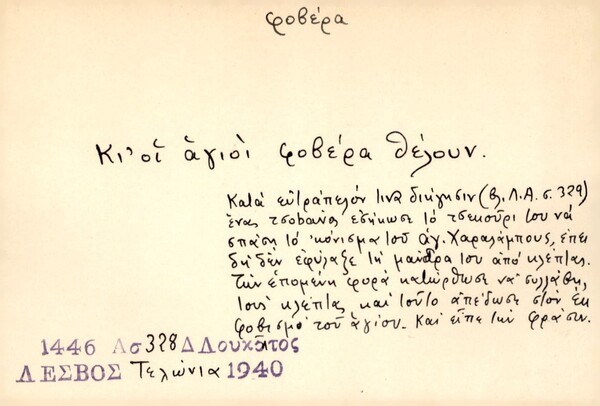 φοβέρα
Κι' οἱ ἅγιοι φοβέρα θέλουν.
Κατὰ εὐτράπελόν τινα διήγησιν (βλ. Λ.Α. σ. 329)
ἕνας τσοβάνος ἐσήκωσε τὸ τσεκοῦρι του νὰ
σπάσῃ τὸ 'κόνισμα τοῦ ἁγ. Χαραλάμπους, ἐπει
δὴ δὲν ἐφύλαξε τὴ μάνδρα του ἀπὸ κλέπτας.
Τὴν ἑπομένη φορὰ κατώρθωσε νὰ συλλάβῃ
τοὺς κλέπτας καὶ τοῦτο ἀπέδωσε στὸν ἐκ
φοβισμὸ τοῦ ἁγίου. Καὶ εἶπε τὴν φράσιν.
1446 Λσ 328 Δ Λουκᾶτος
ΛΕΣΒΟΣ Τελώνια 1940